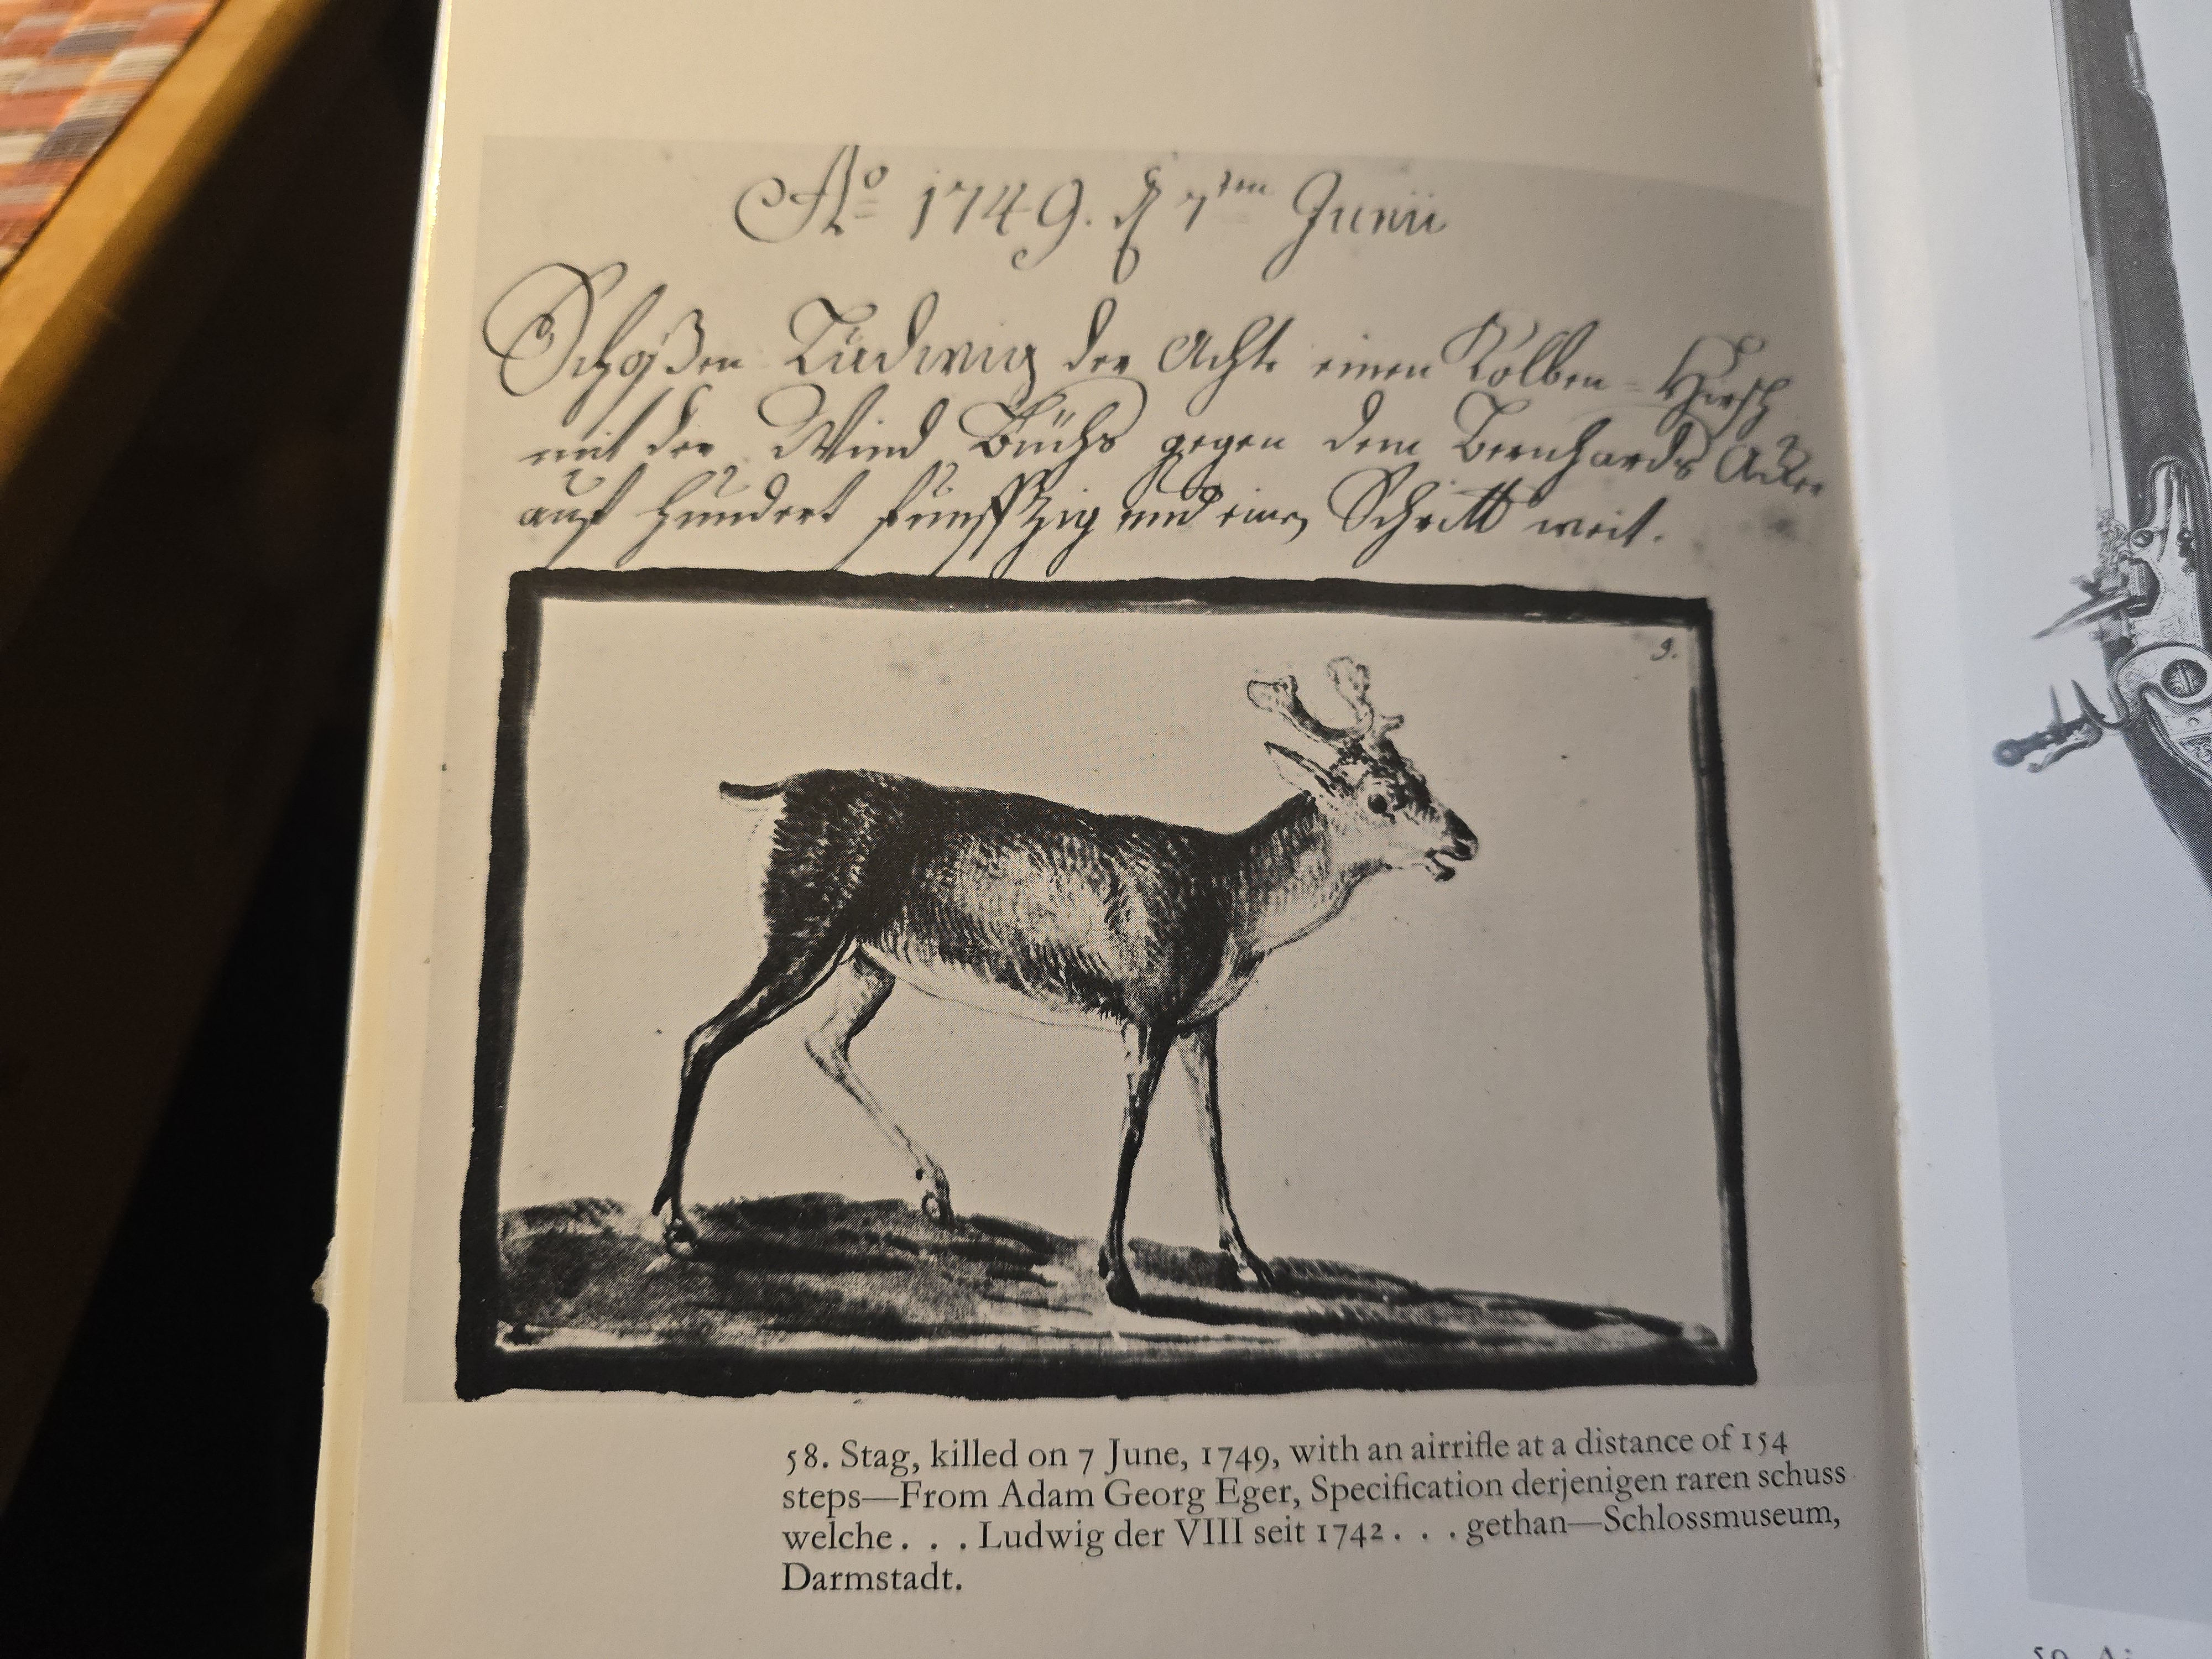 Aº 1749. d 7ten Junii
Schoßen Ludwig der Achte einen Kolben=Hirsch
mit der Wind Büchs gegen dem Bernhards Acker
auf hundert funffzig und einen Schritt weit.
9.
58. Stag, killed on 7 June, 1749, with an airrifle at a distance of 154
steps—From Adam Georg Eger, Specification derjenigen raren schuss
welche . . . Ludwig der VIII seit 1742 . . . gethan—Schlossmuseum,
Darmstadt.